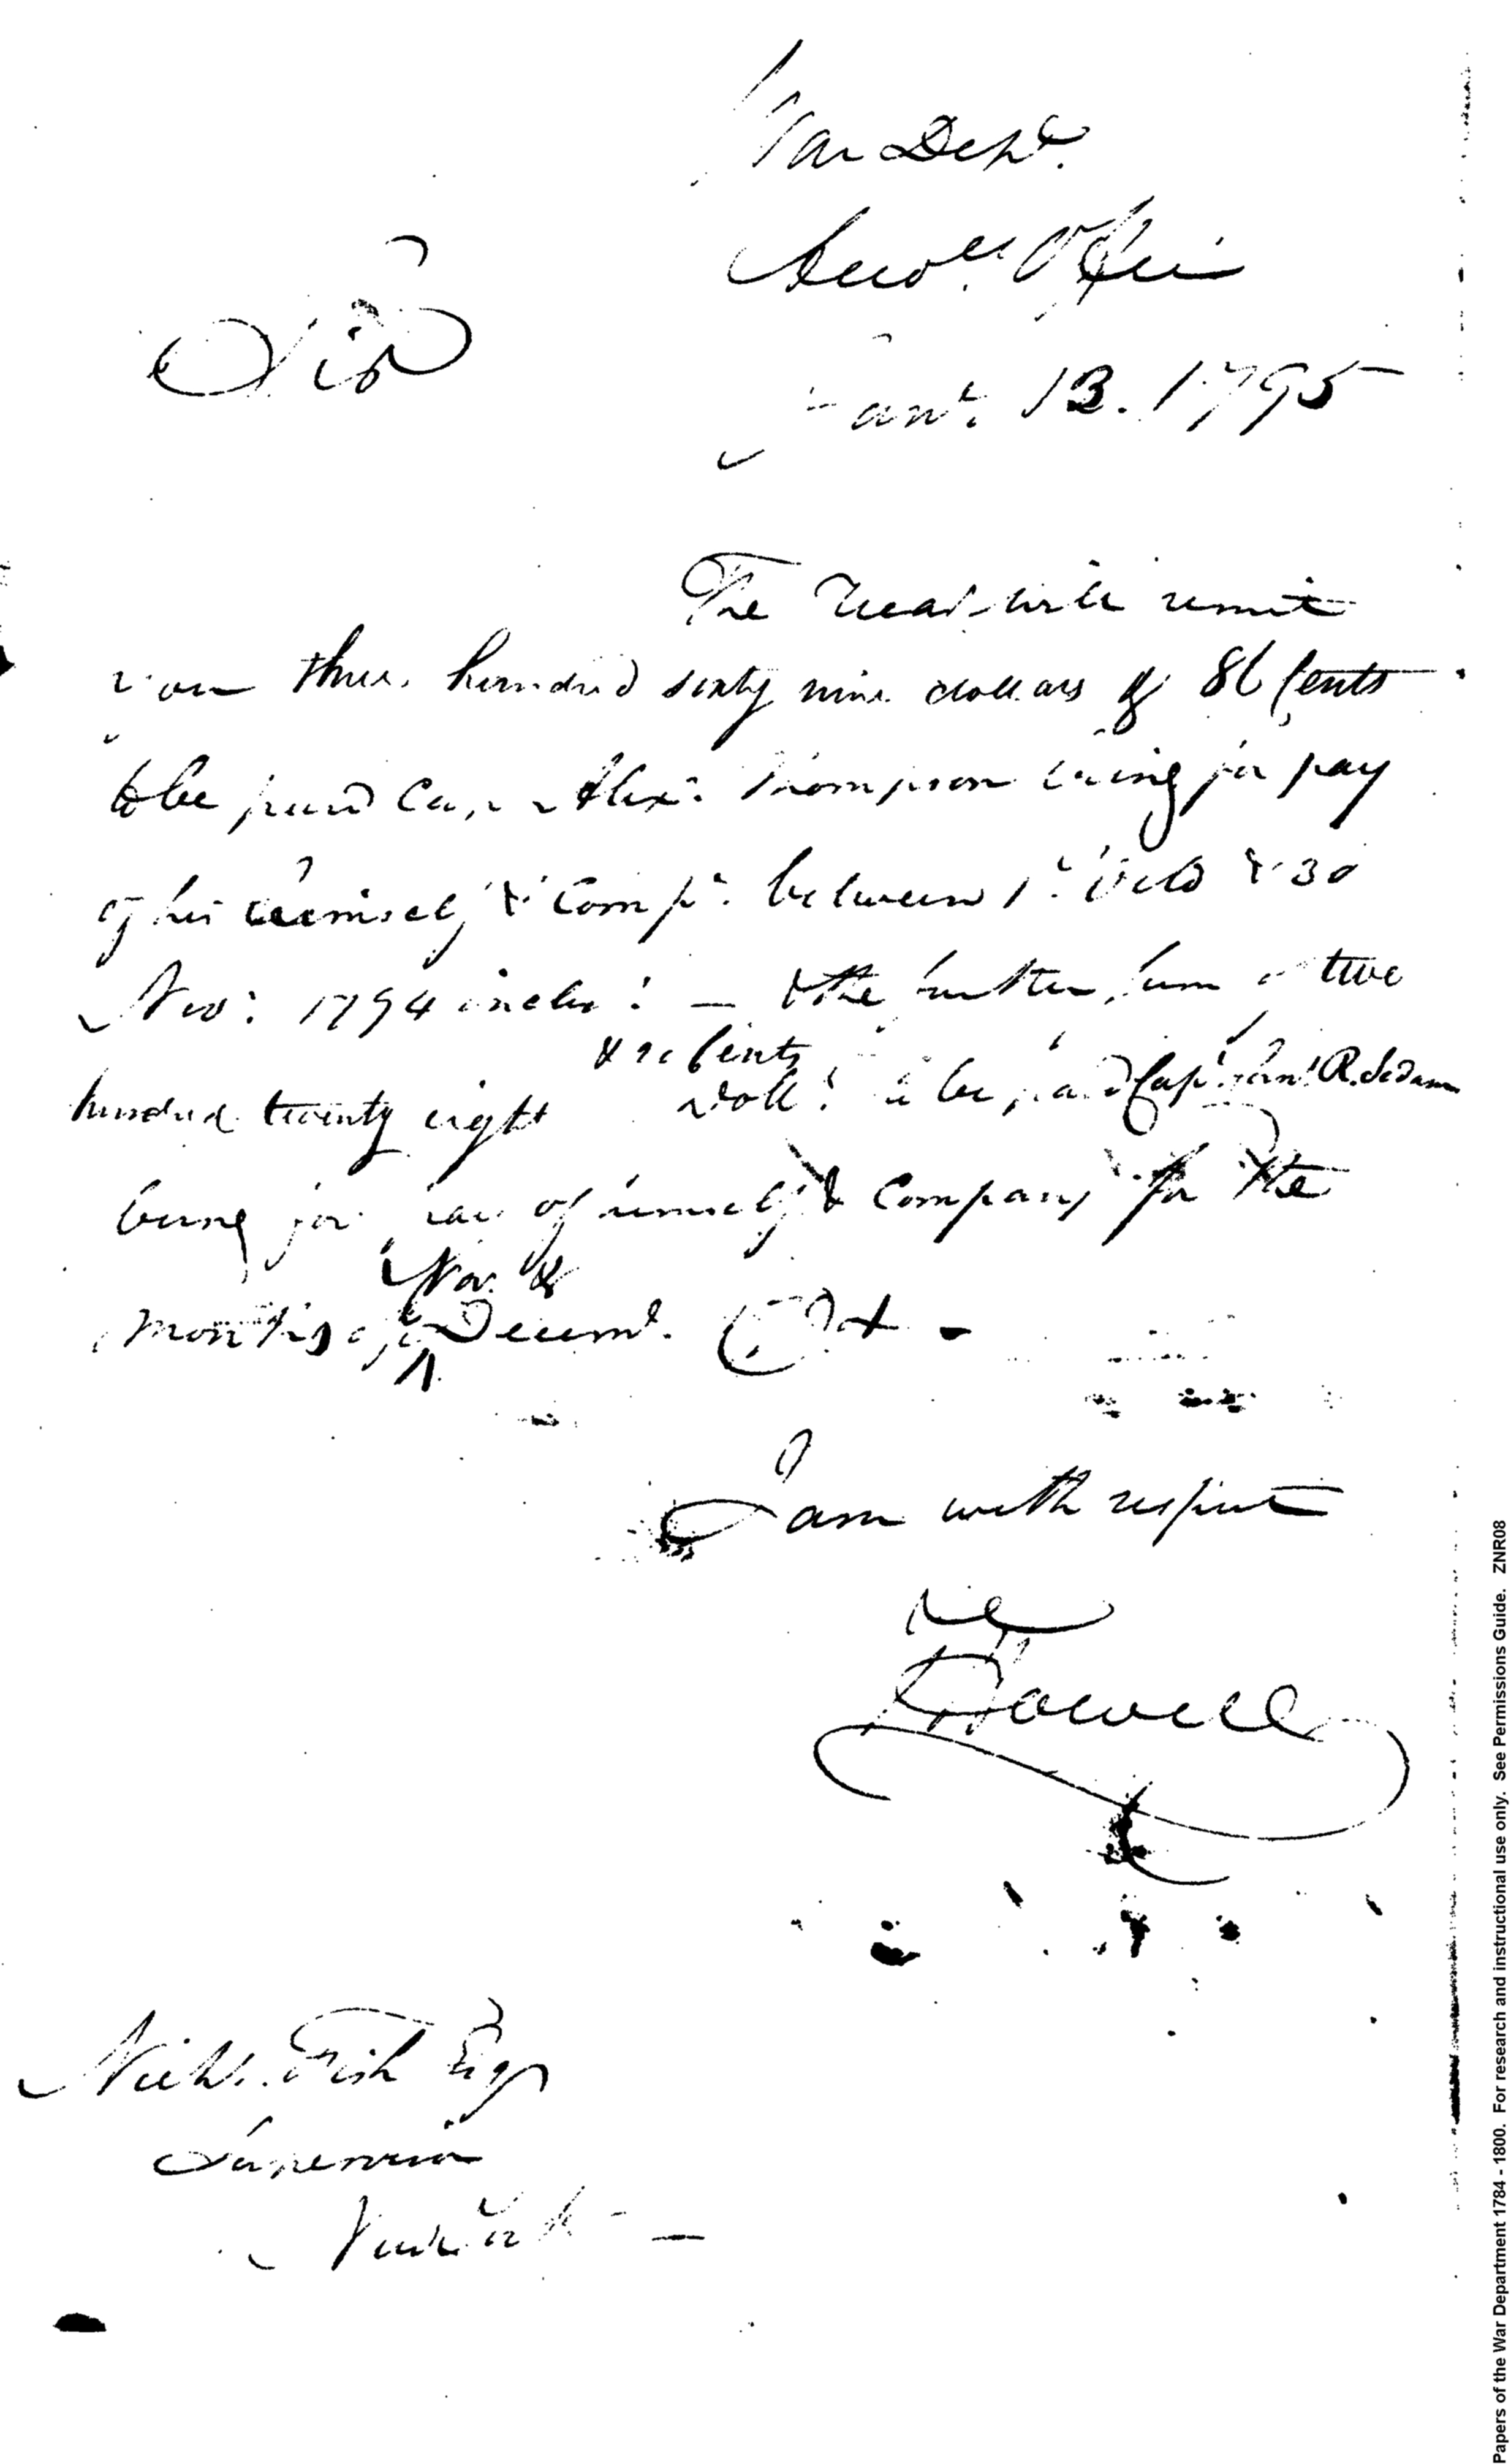 War Dept.
Accots. Office
Sir
Jany. 13. 1795
The Treasr. will remit
you three hundred sixty nine dollars & 86 Cents
to be paid Cap. Alexr. Thompson being for pay
of himself & Compy. between 1st. Octo & 30
Nov: 1794 inclus: — & the further sum of two
hundred twenty eight dolls. to be paid Capt.
& Cents
being for pay of himself & Company for the
months of Nov. & Decemr.
I am with respect
Howell
Nichs. Fish Esqr
Supervisor
New York —
Papers of the War Department 1784 - 1800. For research and instructional use only. See Permissions Guide. ZNR08